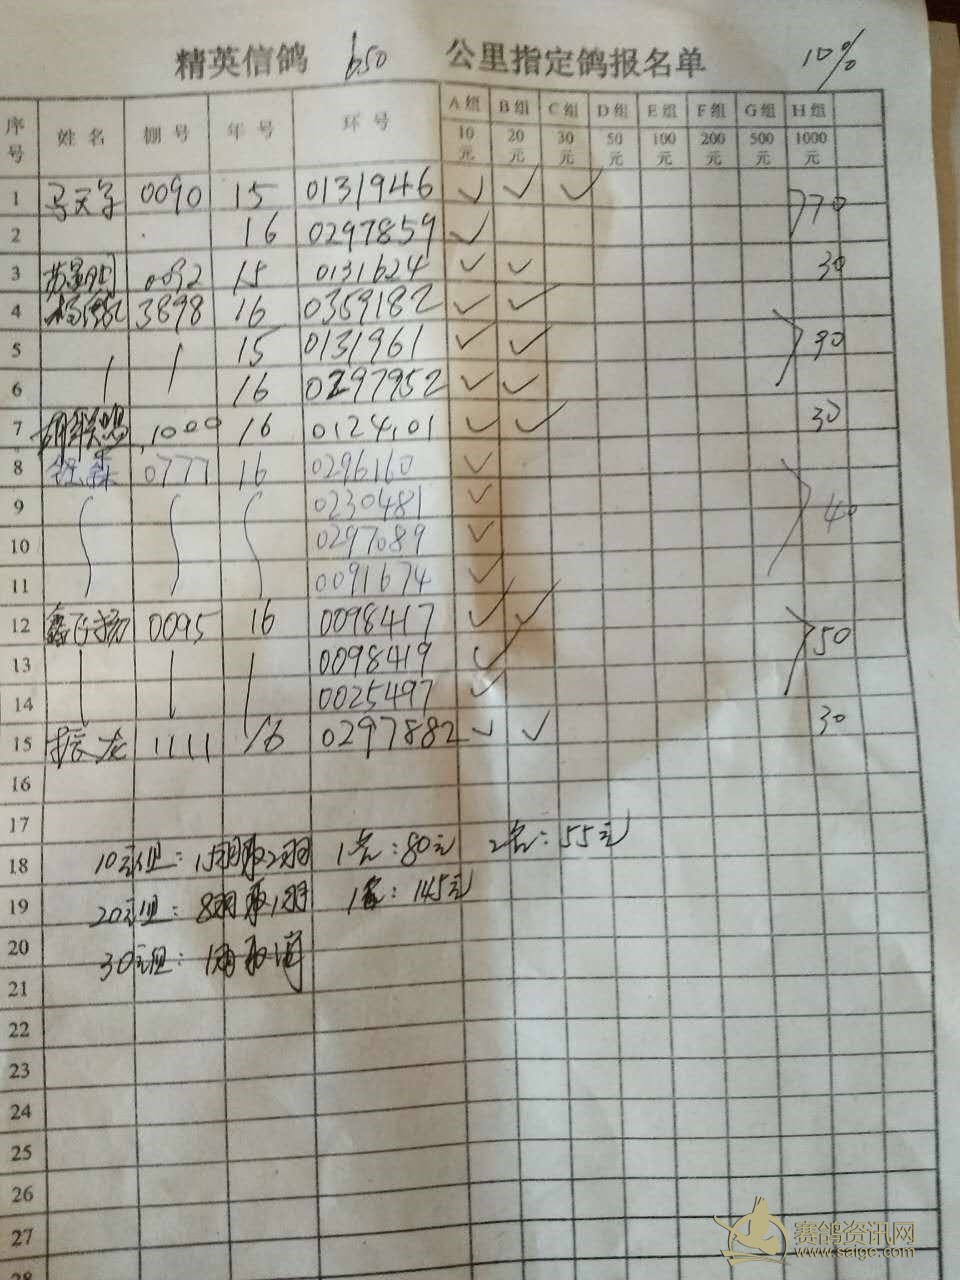 精英信鸽 650 公里指定鸽报名单 10%
序号 姓名 棚号 年号 环号 A组 B组 C组 D组 E组 F组 G组 H组
10元 20元 30元 50元 100元 200元 500元 1000元
1 0090 15 0131946 ✓ ✓ ✓
2 16 0297859 ✓ 70
3 0092 15 0131624 ✓ ✓ 30
4 3898 16 0359182 ✓ ✓
5 15 0131961 ✓ ✓ 90
6 16 0297952 ✓ ✓
7 1000 16 0124101 ✓ ✓ 30
8 0777 16 0296160 ✓
9 0230481 ✓ 40
10 0297089 ✓
11 0091674 ✓
12 0095 16 0098417 ✓ ✓
13 0098419 ✓ 50
14 0025497 ✓
15 振龙 1111 16 0297882 ✓ ✓ 30
16
17
18 10元组：15羽取2羽 1名：80元 2名：55元
19 20元组：8羽取1羽 1名：145元
20 30元组：1羽取消
21
22
23
24
25
26
27
28
赛鸽资讯网
www.saige.com